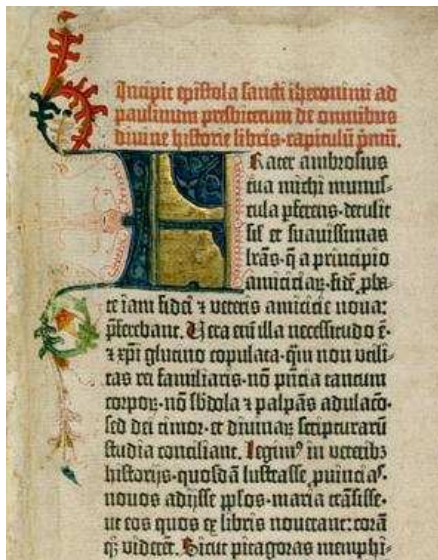 Incipit epistola sancti iheronimi ad
paulinum presbiterum de omnibus
divine historie libris·capitulū pmū.
Frater ambrosius
tua michi munus-
cula pferens·detulit
sił et suavissimas
lrās·q̄ a principio
amiciciaꝝ·fidē pba-
te iam fidei ⁊ veteris amicicie nova:
pferebant. Vera enī illa necessitudo ē·
⁊ xpi glutino copulata·qm̄ non utili-
tas rei familiaris·nō pn̄cia tantum
corpoꝝ·nō sb̄dola ⁊ palpās adulacō·
sed dei timor·et divinaꝝ scripturarū
studia conciliant. Legimꝰ in veteribꝫ
historijs·quosdā lustrasse puīcias·
novos adijsse pplos·maria trāsisse·
ut eos quos ex libris noverant: corā
qꝫ viderēt. Sicut pitagoras memphi-